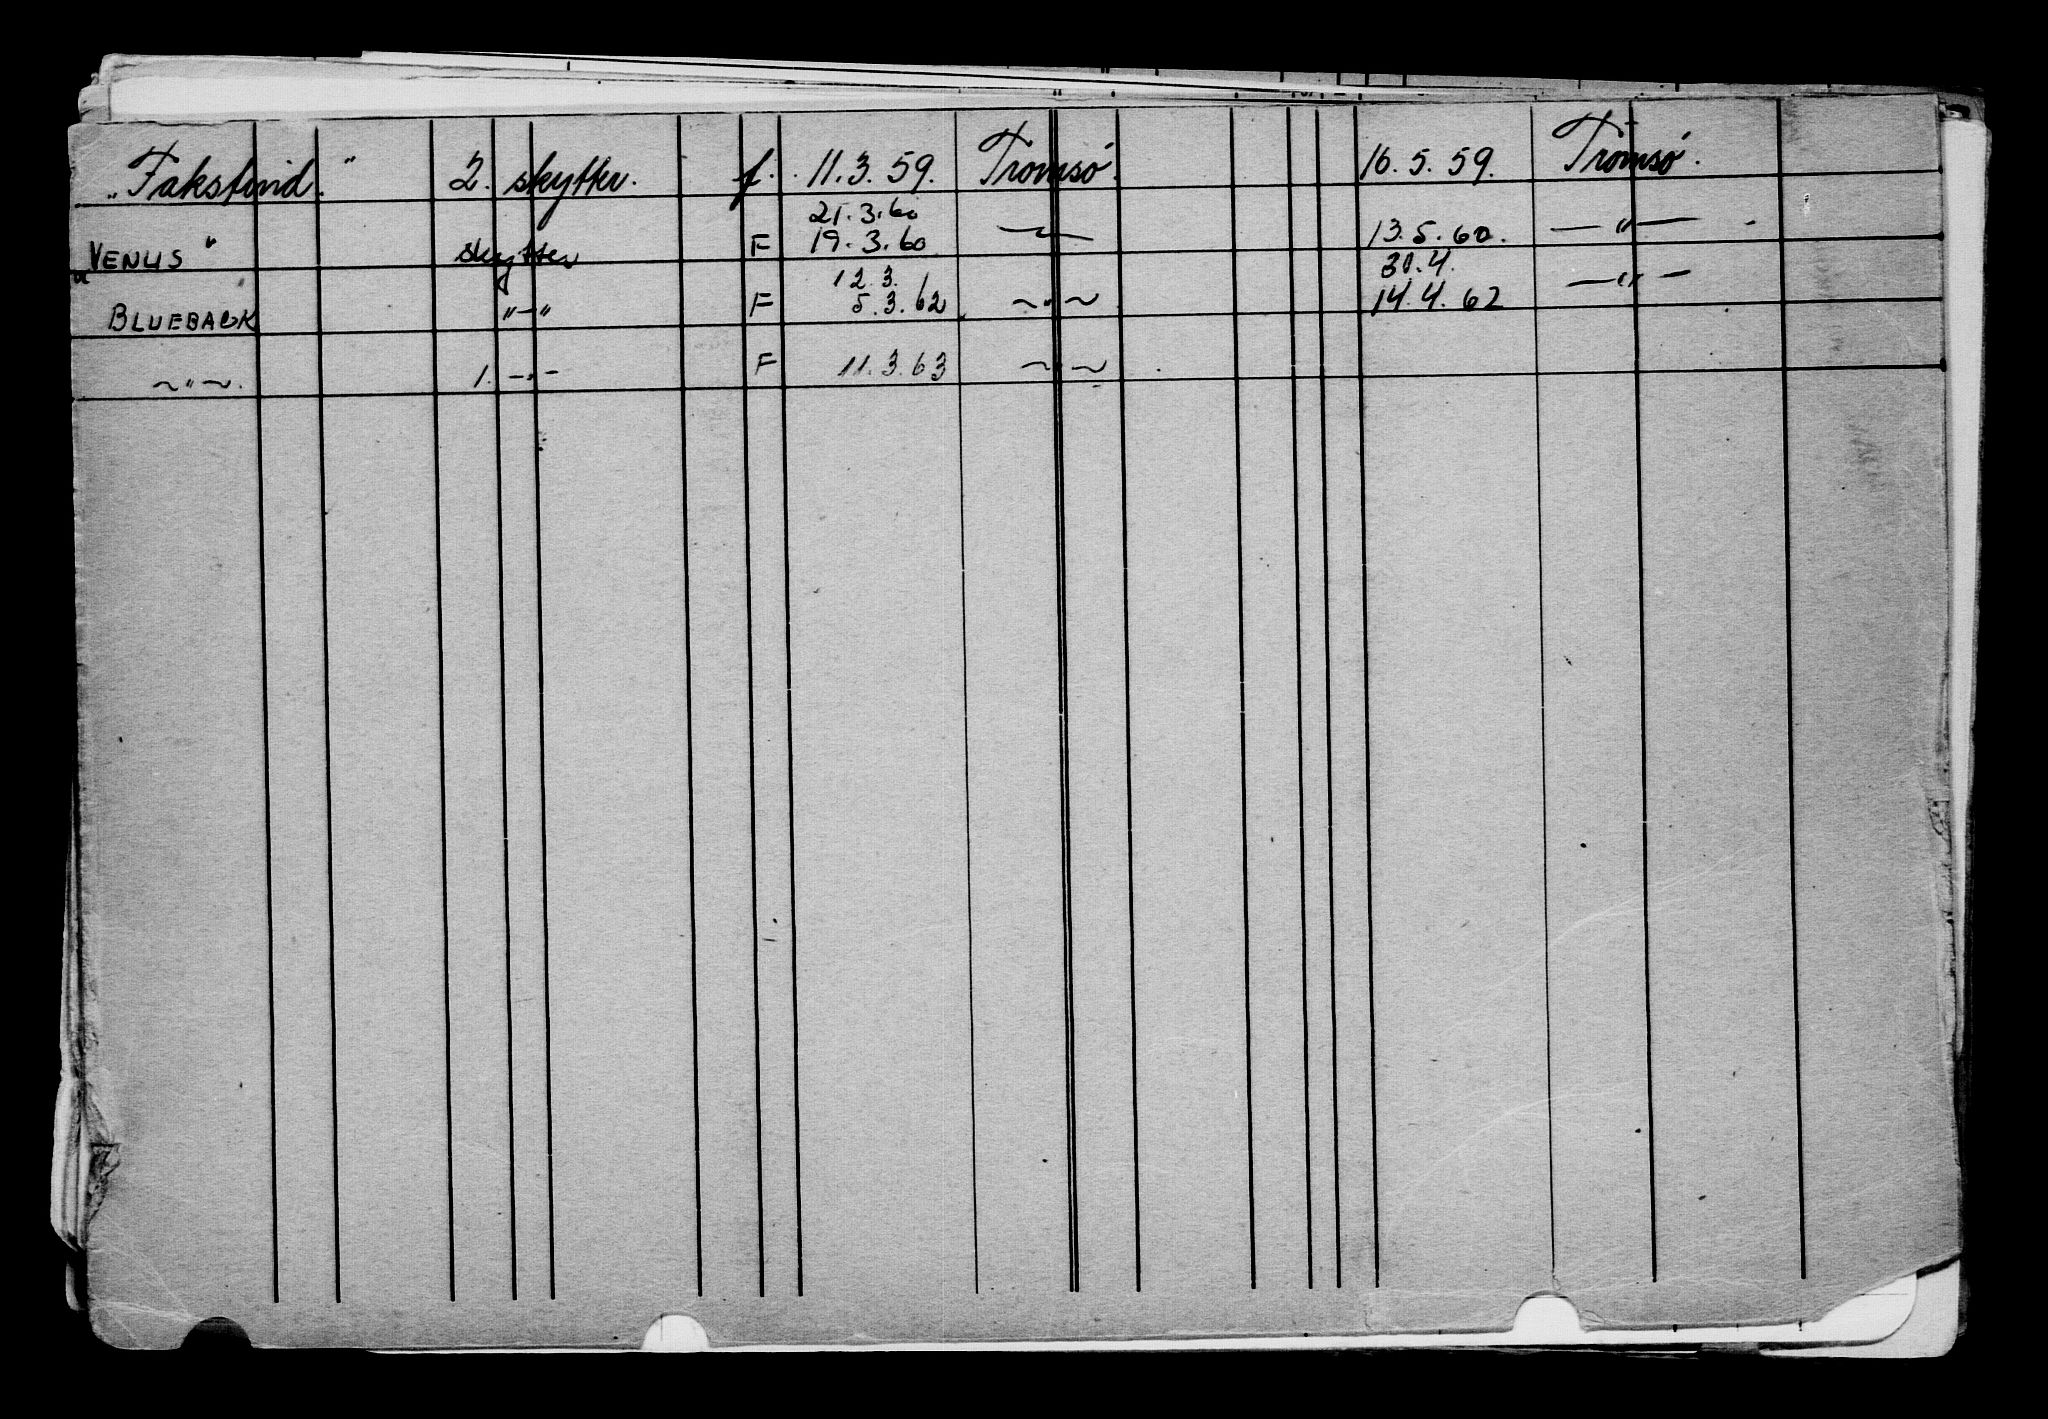 „Fakstind." 2. skytter. f. 11.3.59. Tromsø. 16.5.59. Tromsø.
21.3.60
„VENUS" skytter F 19.3.60 —〃— 13.5.60. —〃—
12.3. 30.4.
BLUEBACK 〃—〃 F 5.3.62 ~〃~ 14.4.62 —〃—
~〃~. 1. —〃— F 11.3.63 ~〃~